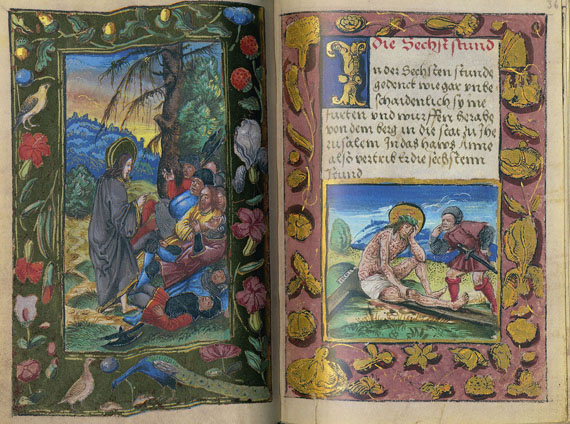 36
die Sechst stund
In der Sechsten stunde
gedenck wie gar vnbe
schaidenlich sy jne
furten vnd wurffen herabe
von dem berg in die stat zu Jhe
rusalem In das haws Anne
also vertreib die sechstenn
Stund